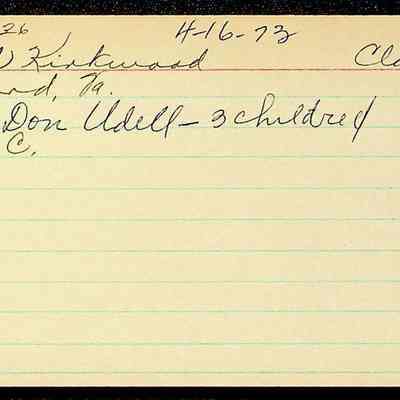 26 4-16-73
W Kirkwood Cla
ord, Va.
Don Udell - 3 children
C.